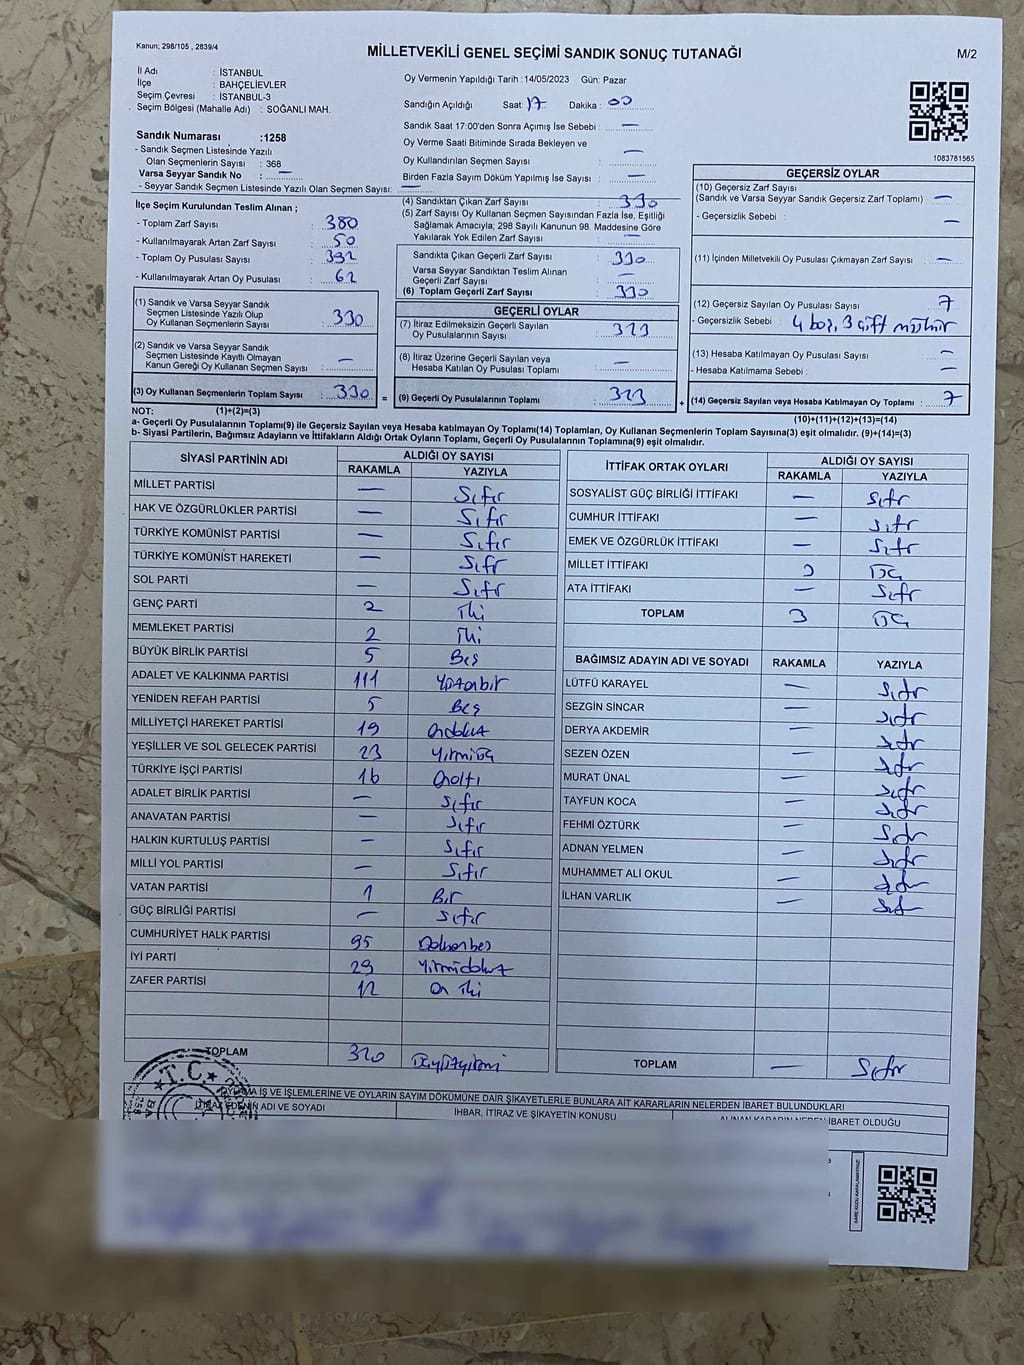 Kanun; 298/105 , 2839/4
MİLLETVEKİLİ GENEL SEÇİMİ SANDIK SONUÇ TUTANAĞI
M/2
İl Adı : İSTANBUL
İlçe : BAHÇELİEVLER
Seçim Çevresi : İSTANBUL-3
Seçim Bölgesi (Mahalle Adı) : SOĞANLI MAH.
Sandık Numarası :1258
- Sandık Seçmen Listesinde Yazılı
Olan Seçmenlerin Sayısı : 368
Varsa Seyyar Sandık No : —
- Seyyar Sandık Seçmen Listesinde Yazılı Olan Seçmen Sayısı: —
İlçe Seçim Kurulundan Teslim Alınan ;
- Toplam Zarf Sayısı : 380
- Kullanılmayarak Artan Zarf Sayısı : 50
- Toplam Oy Pusulası Sayısı : 392
- Kullanılmayarak Artan Oy Pusulası : 62
(1) Sandık ve Varsa Seyyar Sandık
Seçmen Listesinde Yazılı Olup
Oy Kullanan Seçmenlerin Sayısı : 330
(2) Sandık ve Varsa Seyyar Sandık
Seçmen Listesinde Kayıtlı Olmayan
Kanun Gereği Oy Kullanan Seçmen Sayısı : —
(3) Oy Kullanan Seçmenlerin Toplam Sayısı : 330 =
Oy Vermenin Yapıldığı Tarih :14/05/2023 Gün: Pazar
Sandığın Açıldığı Saat : 17 Dakika : 00
Sandık Saat 17:00'den Sonra Açımış İse Sebebi : —
Oy Verme Saati Bitiminde Sırada Bekleyen ve
Oy Kullandırılan Seçmen Sayısı : —
Birden Fazla Sayım Döküm Yapılmış İse Sayısı : —
(4) Sandıktan Çıkan Zarf Sayısı : 330
(5) Zarf Sayısı Oy Kullanan Seçmen Sayısından Fazla İse, Eşitliği
Sağlamak Amacıyla; 298 Sayılı Kanunun 98. Maddesine Göre
Yakılarak Yok Edilen Zarf Sayısı : —
Sandıkta Çıkan Geçerli Zarf Sayısı : 330
Varsa Seyyar Sandıktan Teslim Alınan
Geçerli Zarf Sayısı : —
(6) Toplam Geçerli Zarf Sayısı : 330
GEÇERLİ OYLAR
(7) İtiraz Edilmeksizin Geçerli Sayılan
Oy Pusulalarının Sayısı : 323
(8) İtiraz Üzerine Geçerli Sayılan veya
Hesaba Katılan Oy Pusulası Toplamı : —
(9) Geçerli Oy Pusulalarının Toplamı : 323 +
1083781565
GEÇERSİZ OYLAR
(10) Geçersiz Zarf Sayısı
(Sandık ve Varsa Seyyar Sandık Geçersiz Zarf Toplamı) —
- Geçersizlik Sebebi : —
(11) İçinden Milletvekili Oy Pusulası Çıkmayan Zarf Sayısı : —
(12) Geçersiz Sayılan Oy Pusulası Sayısı : 7
- Geçersizlik Sebebi : 4 boş, 3 çift mühür
(13) Hesaba Katılmayan Oy Pusulası Sayısı : —
- Hesaba Katılmama Sebebi : —
(14) Geçersiz Sayılan veya Hesaba Katılmayan Oy Toplamı : 7
NOT: (1)+(2)=(3)
(10)+(11)+(12)+(13)=(14)
a- Geçerli Oy Pusulalarının Toplamı(9) ile Geçersiz Sayılan veya Hesaba katılmayan Oy Toplamı(14) Toplamları, Oy Kullanan Seçmenlerin Toplam Sayısına(3) eşit olmalıdır. (9)+(14)=(3)
b- Siyasi Partilerin, Bağımsız Adayların ve İttifakların Aldığı Ortak Oyların Toplamı, Geçerli Oy Pusulalarının Toplamına(9) eşit olmalıdır.
SİYASİ PARTİNİN ADI
ALDIĞI OY SAYISI
RAKAMLA YAZIYLA
MİLLET PARTİSİ — Sıfır
HAK VE ÖZGÜRLÜKLER PARTİSİ — Sıfır
TÜRKİYE KOMÜNİST PARTİSİ — Sıfır
TÜRKİYE KOMÜNİST HAREKETİ — Sıfr
SOL PARTİ — Sıfr
GENÇ PARTİ 2 İki
MEMLEKET PARTİSİ 2 İki
BÜYÜK BİRLİK PARTİSİ 5 Beş
ADALET VE KALKINMA PARTİSİ 111 Yüzonbir
YENİDEN REFAH PARTİSİ 5 Beş
MİLLİYETÇİ HAREKET PARTİSİ 19 Ondokuz
YEŞİLLER VE SOL GELECEK PARTİSİ 23 Yirmiüç
TÜRKİYE İŞÇİ PARTİSİ 16 Onaltı
ADALET BİRLİK PARTİSİ — Sıfır
ANAVATAN PARTİSİ — Sıfır
HALKIN KURTULUŞ PARTİSİ — Sıfır
MİLLİ YOL PARTİSİ — Sıfır
VATAN PARTİSİ 1 Bir
GÜÇ BİRLİĞİ PARTİSİ — Sıfır
CUMHURİYET HALK PARTİSİ 95 Doksanbeş
İYİ PARTİ 29 Yirmidokuz
ZAFER PARTİSİ 12 On İki
TOPLAM 320 Üçyüzyirmi
İTTİFAK ORTAK OYLARI
ALDIĞI OY SAYISI
RAKAMLA YAZIYLA
SOSYALİST GÜÇ BİRLİĞİ İTTİFAKI — Sıfr
CUMHUR İTTİFAKI — Sıfr
EMEK VE ÖZGÜRLÜK İTTİFAKI — Sıfr
MİLLET İTTİFAKI 3 Üç
ATA İTTİFAKI — Sıfr
TOPLAM 3 Üç
BAĞIMSIZ ADAYIN ADI VE SOYADI RAKAMLA YAZIYLA
LÜTFÜ KARAYEL — Sıfr
SEZGİN SİNCAR — Sıfr
DERYA AKDEMİR — Sıfr
SEZEN ÖZEN — Sıfr
MURAT ÜNAL — Sıfr
TAYFUN KOCA — Sıfr
FEHMİ ÖZTÜRK — Sıfr
ADNAN YELMEN — Sıfr
MUHAMMET ALİ OKUL — Sıfr
İLHAN VARLIK — Sıfr
TOPLAM — Sıfr
T.C.
İŞ VE İŞLEMLERİNE VE OYLARIN SAYIM DÖKÜMÜNE DAİR ŞİKAYETLERLE BUNLARA AİT KARARLARIN NELERDEN İBARET BULUNDUKLARI
ADI VE SOYADI
İHBAR, İTİRAZ VE ŞİKAYETİN KONUSU
İBARET OLDUĞU